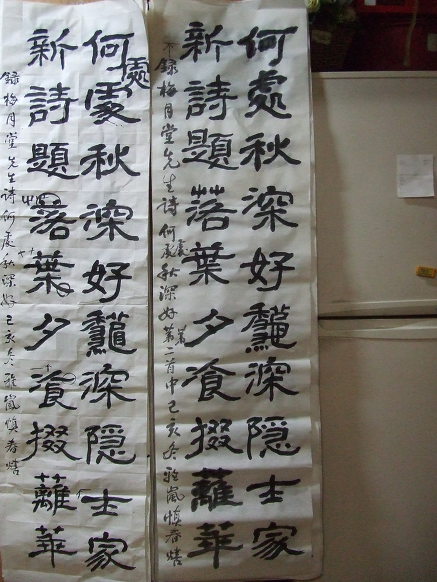 何處秋深好龝深隱士家
新詩題落葉夕湌掇蘺華
錄梅月堂先生詩何處秋深好二首中己亥冬雅嵐慎春熺
何處秋深好龝深隱士家
處
新詩題落葉夕湌掇蘺華
錄梅月堂先生詩何處秋深好己亥冬雅嵐慎春熺